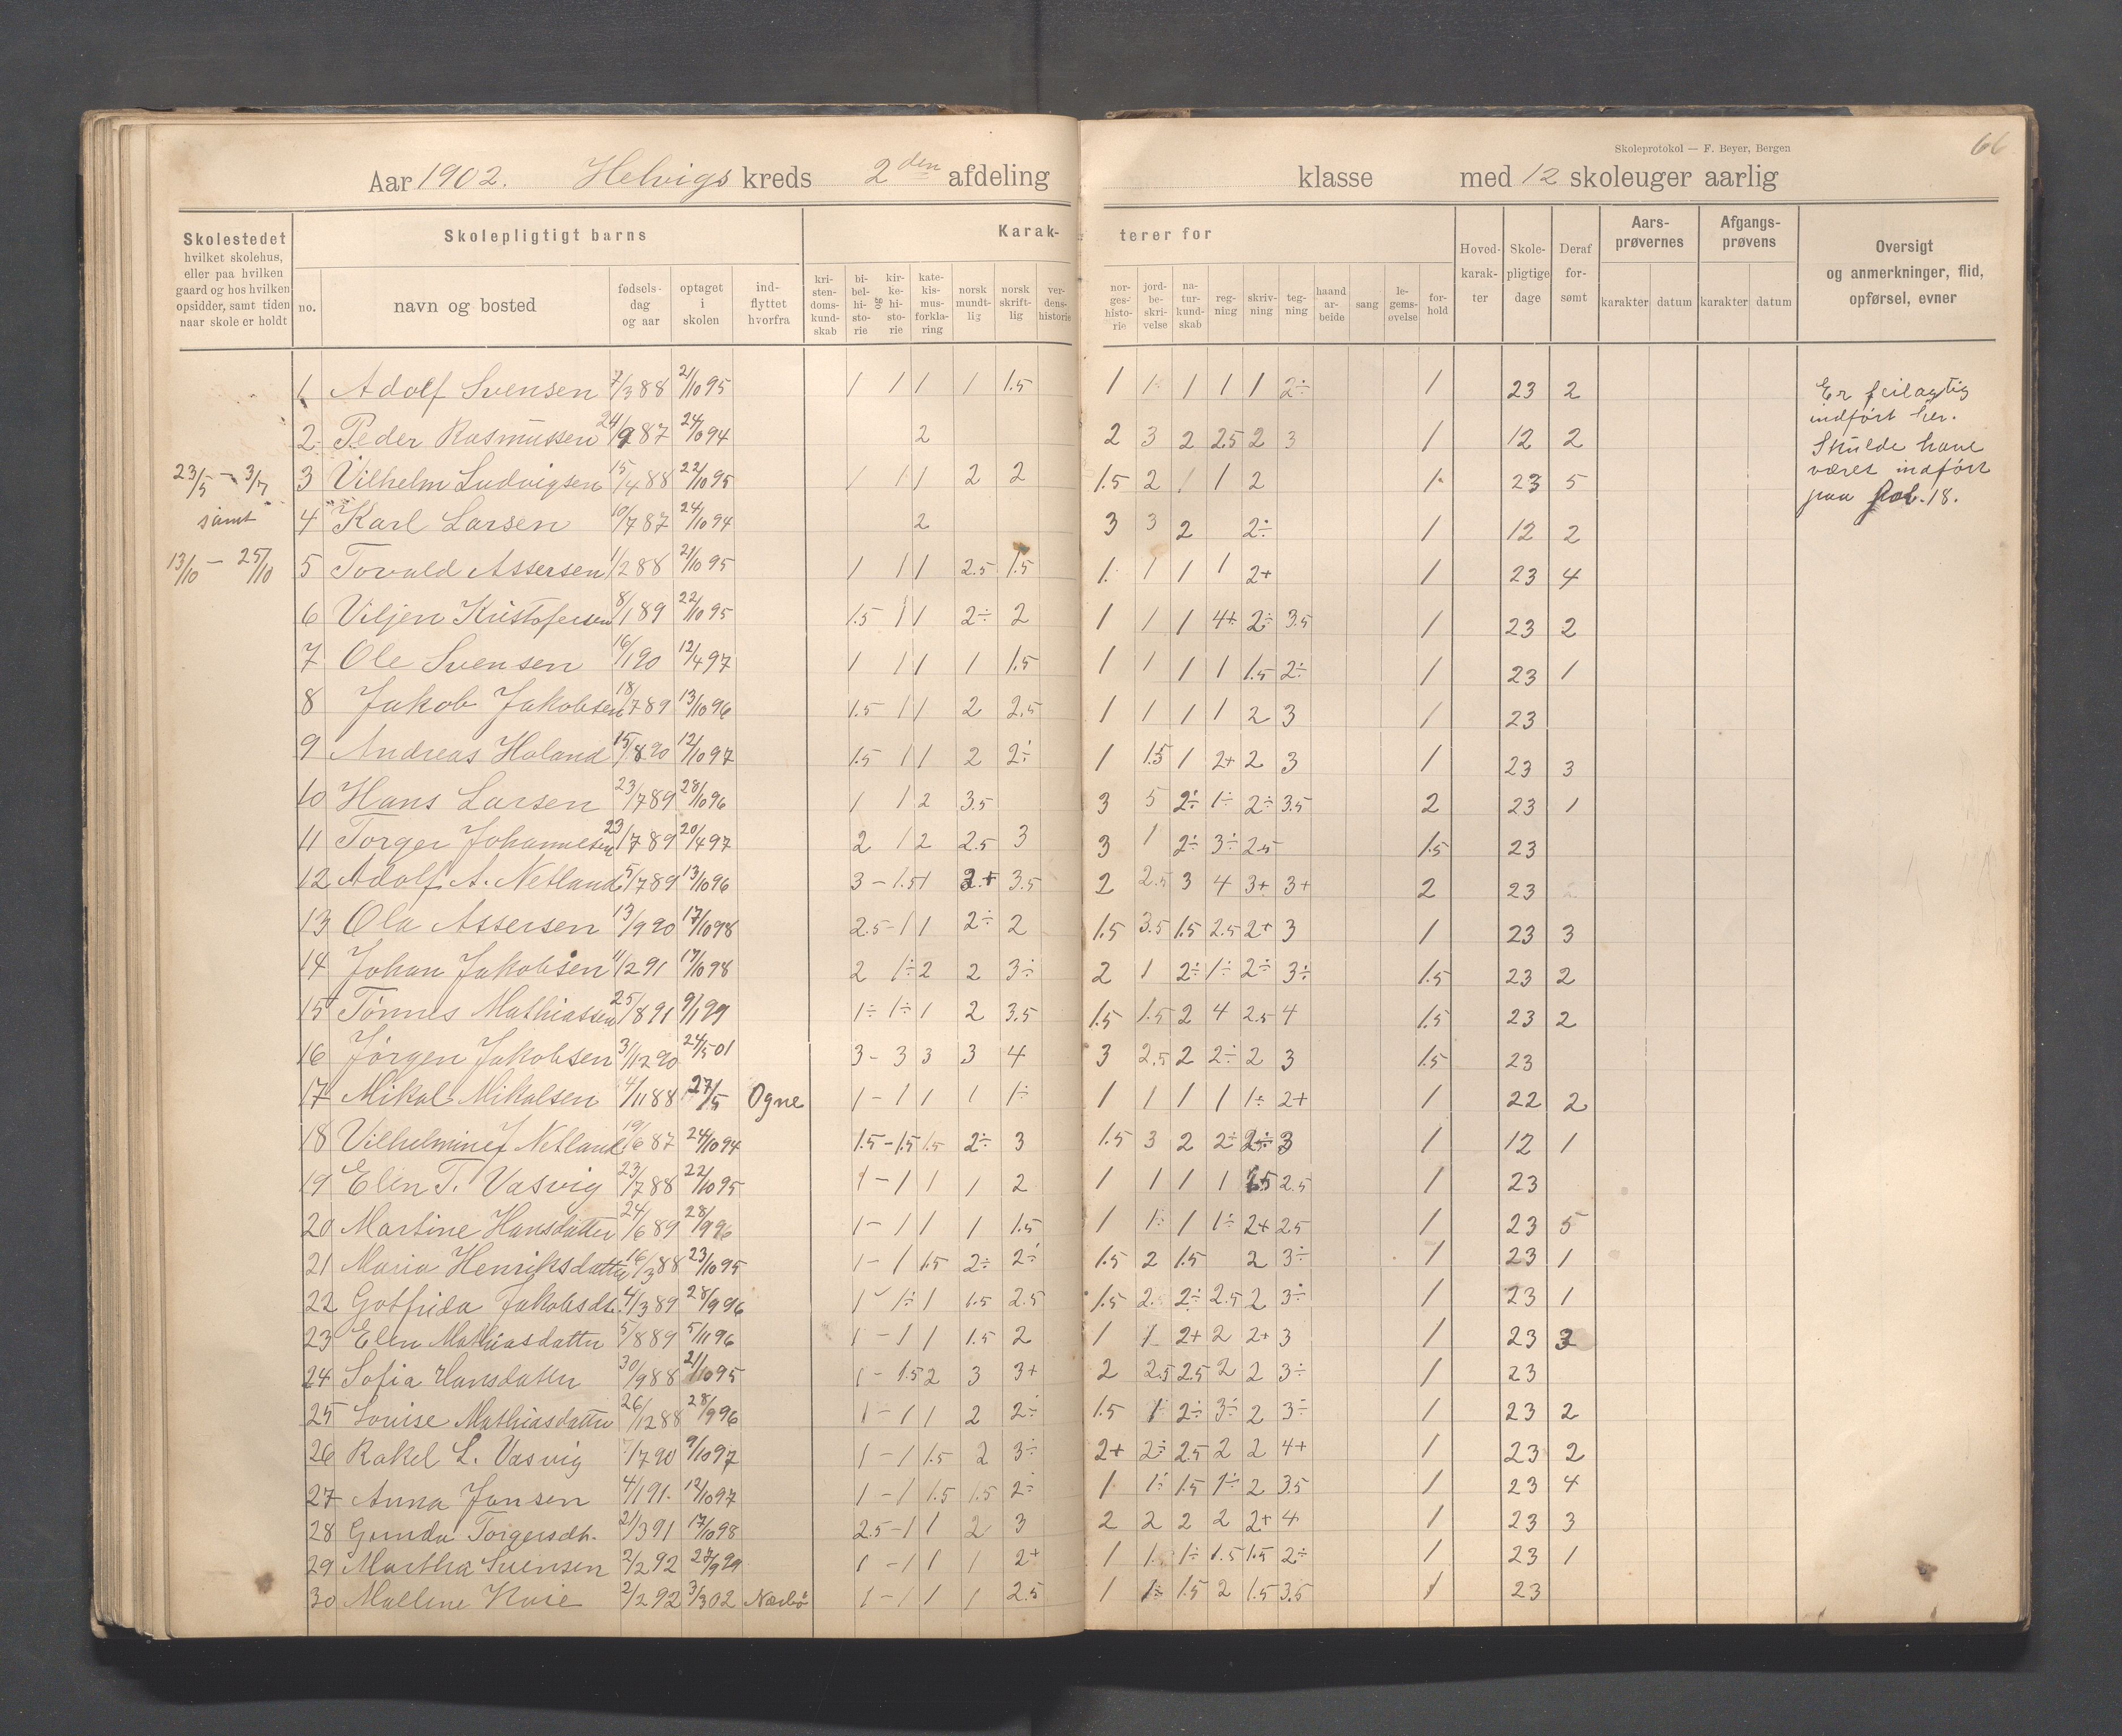 Skoleprotokol — F. Beyer, Bergen
66
Aar 1902. Helvigs kreds 2den afdeling klasse med 12 skoleuger aarlig
Skolestedet
hvilket skolehus,
eller paa hvilken
gaard og hos hvilken
opsidder, samt tiden
naar skole er holdt
Skolepligtigt barns
no. navn og bosted
fødsels-
dag
og aar
optaget
i
skolen
ind-
flyttet
hvorfra
Karak- terer for
kri-
sten-
doms-
kund-
skab
bi-
bel-
hi-
sto-
rie
og
kir-
ke-
hi-
sto-
rie
kate-
kis-
mus-
forkla-
ring
norsk
mundt-
lig
norsk
skrift-
lig
ver-
dens-
historie
nor-
ges-
histo-
rie
jord-
be-
skri-
velse
na-
tur-
kund-
skab
reg-
ning
skriv-
ning
teg-
ning
haand
ar-
beide
sang
le-
gems-
øvelse
for-
hold
Hoved-
karak-
ter
Skole-
pligtige
dage
Deraf
for-
sømt
Aars-
prøvernes
karakter datum
Afgangs-
prøvens
karakter datum
Oversigt
og anmerkninger, flid,
opførsel, evner
23/5 – 3/7
samt
13/10 – 25/10
1 Adolf Svensen 7/3 88 21/10 95 1 1 1 1 1.5 1 1 1 1 1 2÷ 1 23 2
2 Peder Rasmussen 24/9 87 24/10 94 2 2 3 2 2.5 2 3 1 12 2
3 Vilhelm Ludvigsen 15/4 88 22/10 95 1 1 1 2 2 1.5 2 1 1 2 1 23 5
4 Karl Larsen 10/7 87 24/10 94 2 3 3 2 2÷ 1 12 2
5 Tovald Assersen 1/2 88 21/10 95 1 1 1 2.5 1.5 1 1 1 1 2+ 1 23 4
6 Viljen Kristofersen 8/1 89 22/10 95 1.5 1 1 2÷ 2 1 1 1 4+ 2÷ 3.5 1 23 2
7 Ole Svensen 16/1 90 12/4 97 1 1 1 1 1.5 1 1 1 1 1.5 2÷ 1 23 1
8 Jakob Jakobsen 18/7 89 13/10 96 1.5 1 1 2 2.5 1 1 1 1 2 3 1 23
9 Andreas Holand 15/8 90 12/10 97 1.5 1 1 2 2÷ 1 1.5 1 2+ 2 3 1 23 3
10 Hans Larsen 23/7 89 28/10 96 1 1 2 3.5 3 5 2÷ 1÷ 2÷ 3.5 2 23 1
11 Torger Johannesen 23/7 89 20/4 97 2 1 2 2.5 3 3 1 2÷ 3÷ 2.5 1.5 23
12 Adolf A. Netland 5/7 89 13/10 96 3 – 1.5 1 2.+ 3.5 2 2.5 3 4 3+ 3+ 2 23
13 Ola Assersen 13/9 90 17/10 98 2.5 – 1 1 2÷ 2 1.5 3.5 1.5 2.5 2+ 3 1 23 3
14 Johan Jakobsen 11/2 91 17/10 98 2 1÷ 2 2 3÷ 2 1 2÷ 1÷ 2÷ 3÷ 1.5 23 2
15 Tønnes Mathiassen 25/8 91 9/1 99 1÷ 1÷ 1 2 3.5 1.5 1.5 2 4 2.5 4 1.5 23 2
16 Jørgen Jakobsen 3/12 90 24/5 01 3 – 3 3 3 4 3 2.5 2 2÷ 2 3 1.5 23
17 Mikal Mikalsen 4/11 88 27/5 Ogne 1 – 1 1 1 1÷ 1 1 1 1 1÷ 2+ 1 22 2
18 Vilhelmine J Netland 19/6 87 24/10 94 1.5 – 1.5 1.5 2÷ 3 1.5 3 2 2÷ 2÷ 3 1 12 1
19 Elen T. Vasvig 23/7 88 22/10 95 1 – 1 1 1 2 1 1 1 1 1.5 2.5 1 23
20 Martine Hansdatter 24/6 89 28/9 96 1 – 1 1 1 1.5 1 1÷ 1 1÷ 2+ 2.5 1 23 5
21 Maria Henriksdatter 16/3 88 23/10 95 1 – 1 1.5 2÷ 2÷ 1.5 2 1.5 2 3÷ 1 23 1
22 Gotfrida Jakobsdt. 4/3 89 28/9 96 1 – 1÷ 1 1.5 2.5 1.5 2.5 2÷ 2.5 2 3÷ 1 23 1
23 Elen Mathiasdatter 5/8 89 5/11 96 1 – 1 1 1.5 2 1 1 2+ 2 2+ 3 1 23 3
24 Sofia Hansdatter 30/9 88 21/10 95 1 – 1.5 2 3 3+ 2 2.5 2.5 2 2 3÷ 1 23
25 Lovise Mathiasdatter 26/12 88 28/9 96 1 – 1 1 2 2÷ 1.5 1 2÷ 3÷ 2 3÷ 1 23 2
26 Rakel L. Vasvig 7/7 90 9/10 97 1 – 1 1.5 2 3÷ 2+ 2÷ 2.5 2 2 4+ 1 23 2
27 Anna Jansen 4/1 91. 12/10 97 1 – 1 1.5 1.5 2÷ 1 1÷ 1.5 1÷ 2 3.5 1 23 4
28 Gunda Torgersdtr. 21/3 91 17/10 98 2.5 – 1 1 2 3 2 2 2 2 2+ 4 1 23 3
29 Martha Svensen 2/2 92 27/9 99 1 – 1 1 1 2+ 1 1. 1÷ 1.5 1.5 2÷ 1 23 1
30 Mallene Kvie 2/2 92 3/3 02 Nærbø 1 – 1 1 1 2.5 1 1÷ 1.5 2 1.5 3.5 1 23
Er feilagtig
indført her.
Skulde have
været indført
paa fol. 18.